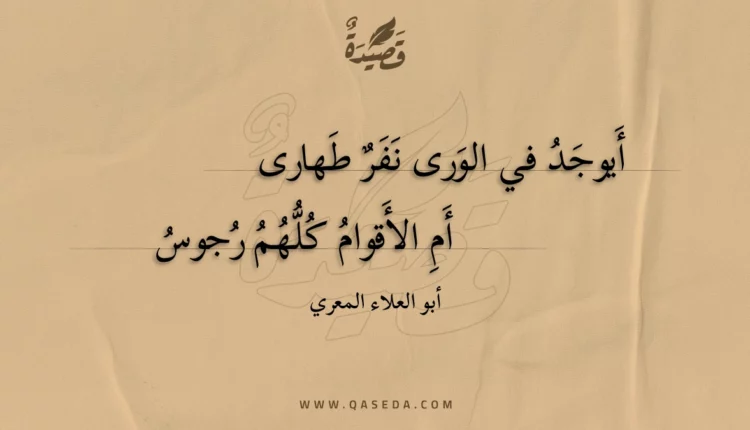 قَصِيدَةٌ
أَيوجَدُ في الوَرى نَفَرٌ طَهارى
أَمِ الأَقوامُ كُلُّهُمُ رُجوسُ
أبو العلاء المعري
WWW.QASEDA.COM